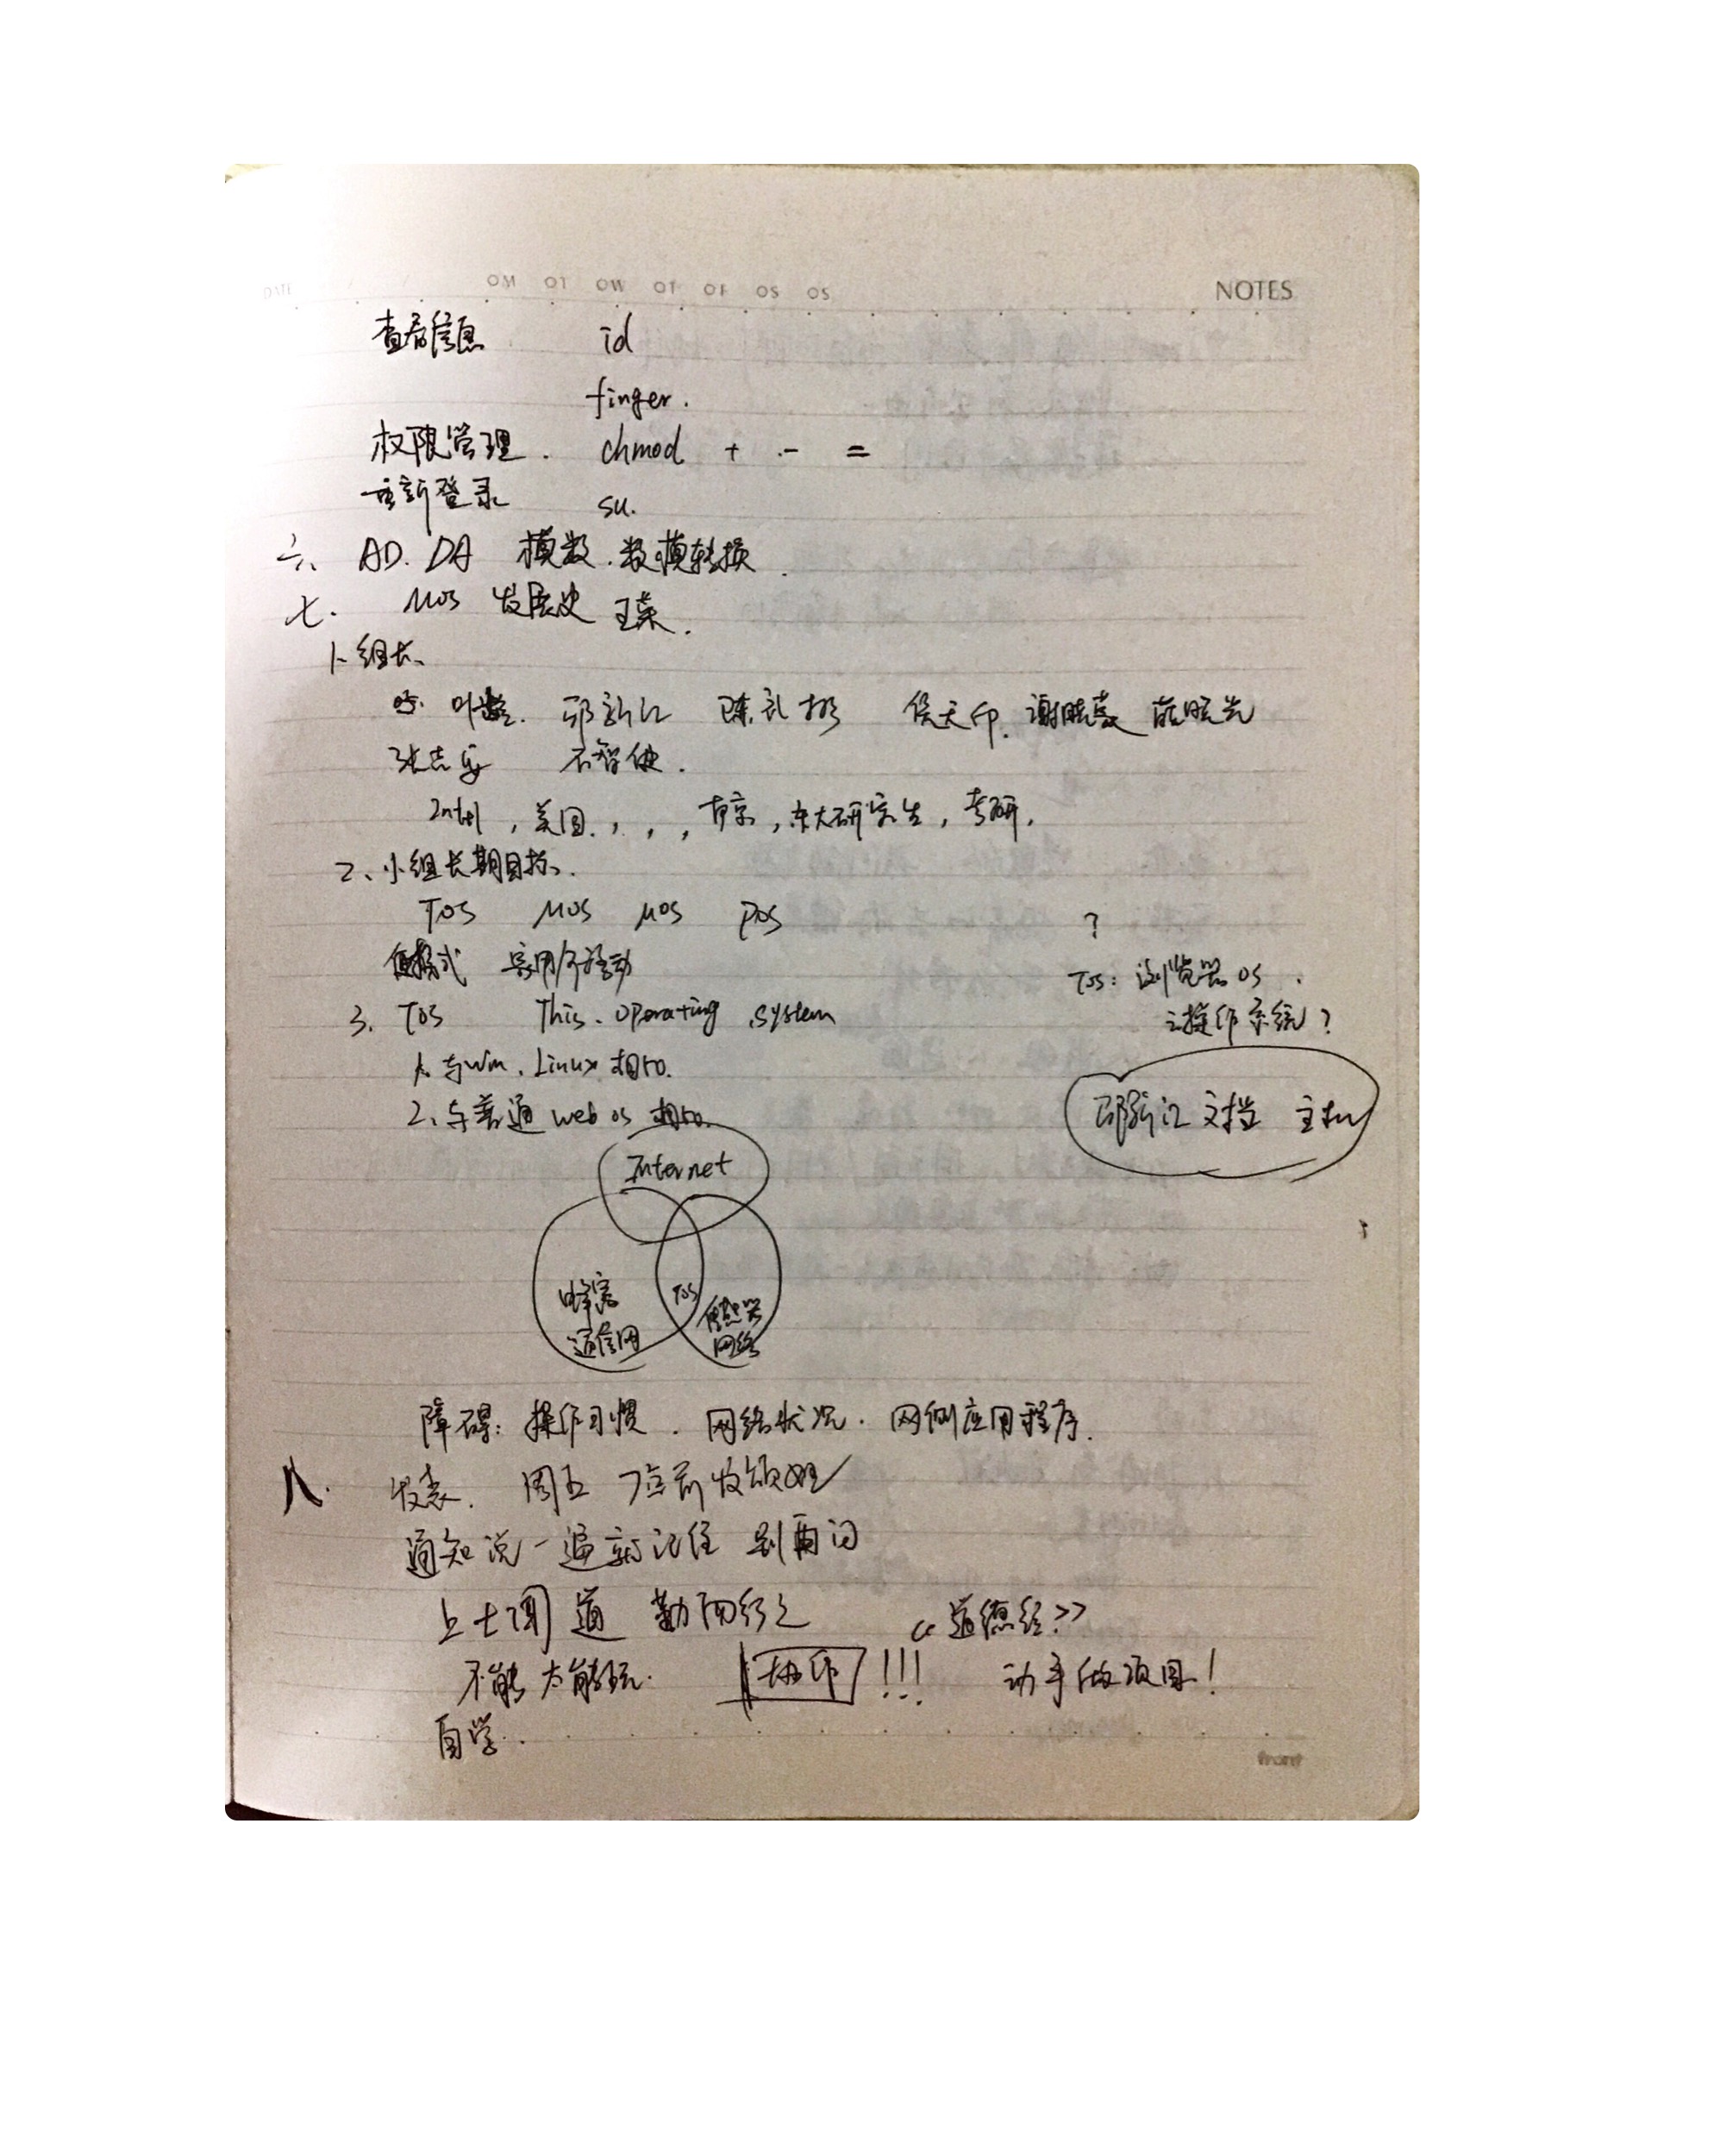 DATE / / OM OT OW OT OF OS OS NOTES
查看信息 id
finger.
权限管理. chmod + - =
重新登录 su.
六、AD. DA 模数.数模转换.
七. MOS 发展史 王荣.
1、组长、
叶 邵新江 陈 侯天印. 谢晓 晓光
张志 石智
Intel, 美国, , , 南京, 东大研究生, 考研,
2、小组长期目标、
TOS MOS μOS POS ?
便携式 实用 移动
TOS: 浏览器OS.
3. TOS This. operating system
操作系统?
1、与Win、Linux相比.
2、与普通 web os 相比.
邵新江 文档 主机
Internet
蜂窝
通信网
TOS
传感器
网络
障碍: 操作习惯. 网络状况. 网侧应用程序.
八. 发表. 周五 7点前发
通知说一遍就记住 别再问
上士闻道 勤而行之 《道德经》
不能太能玩. !!! 动手做项目!
自学.
front